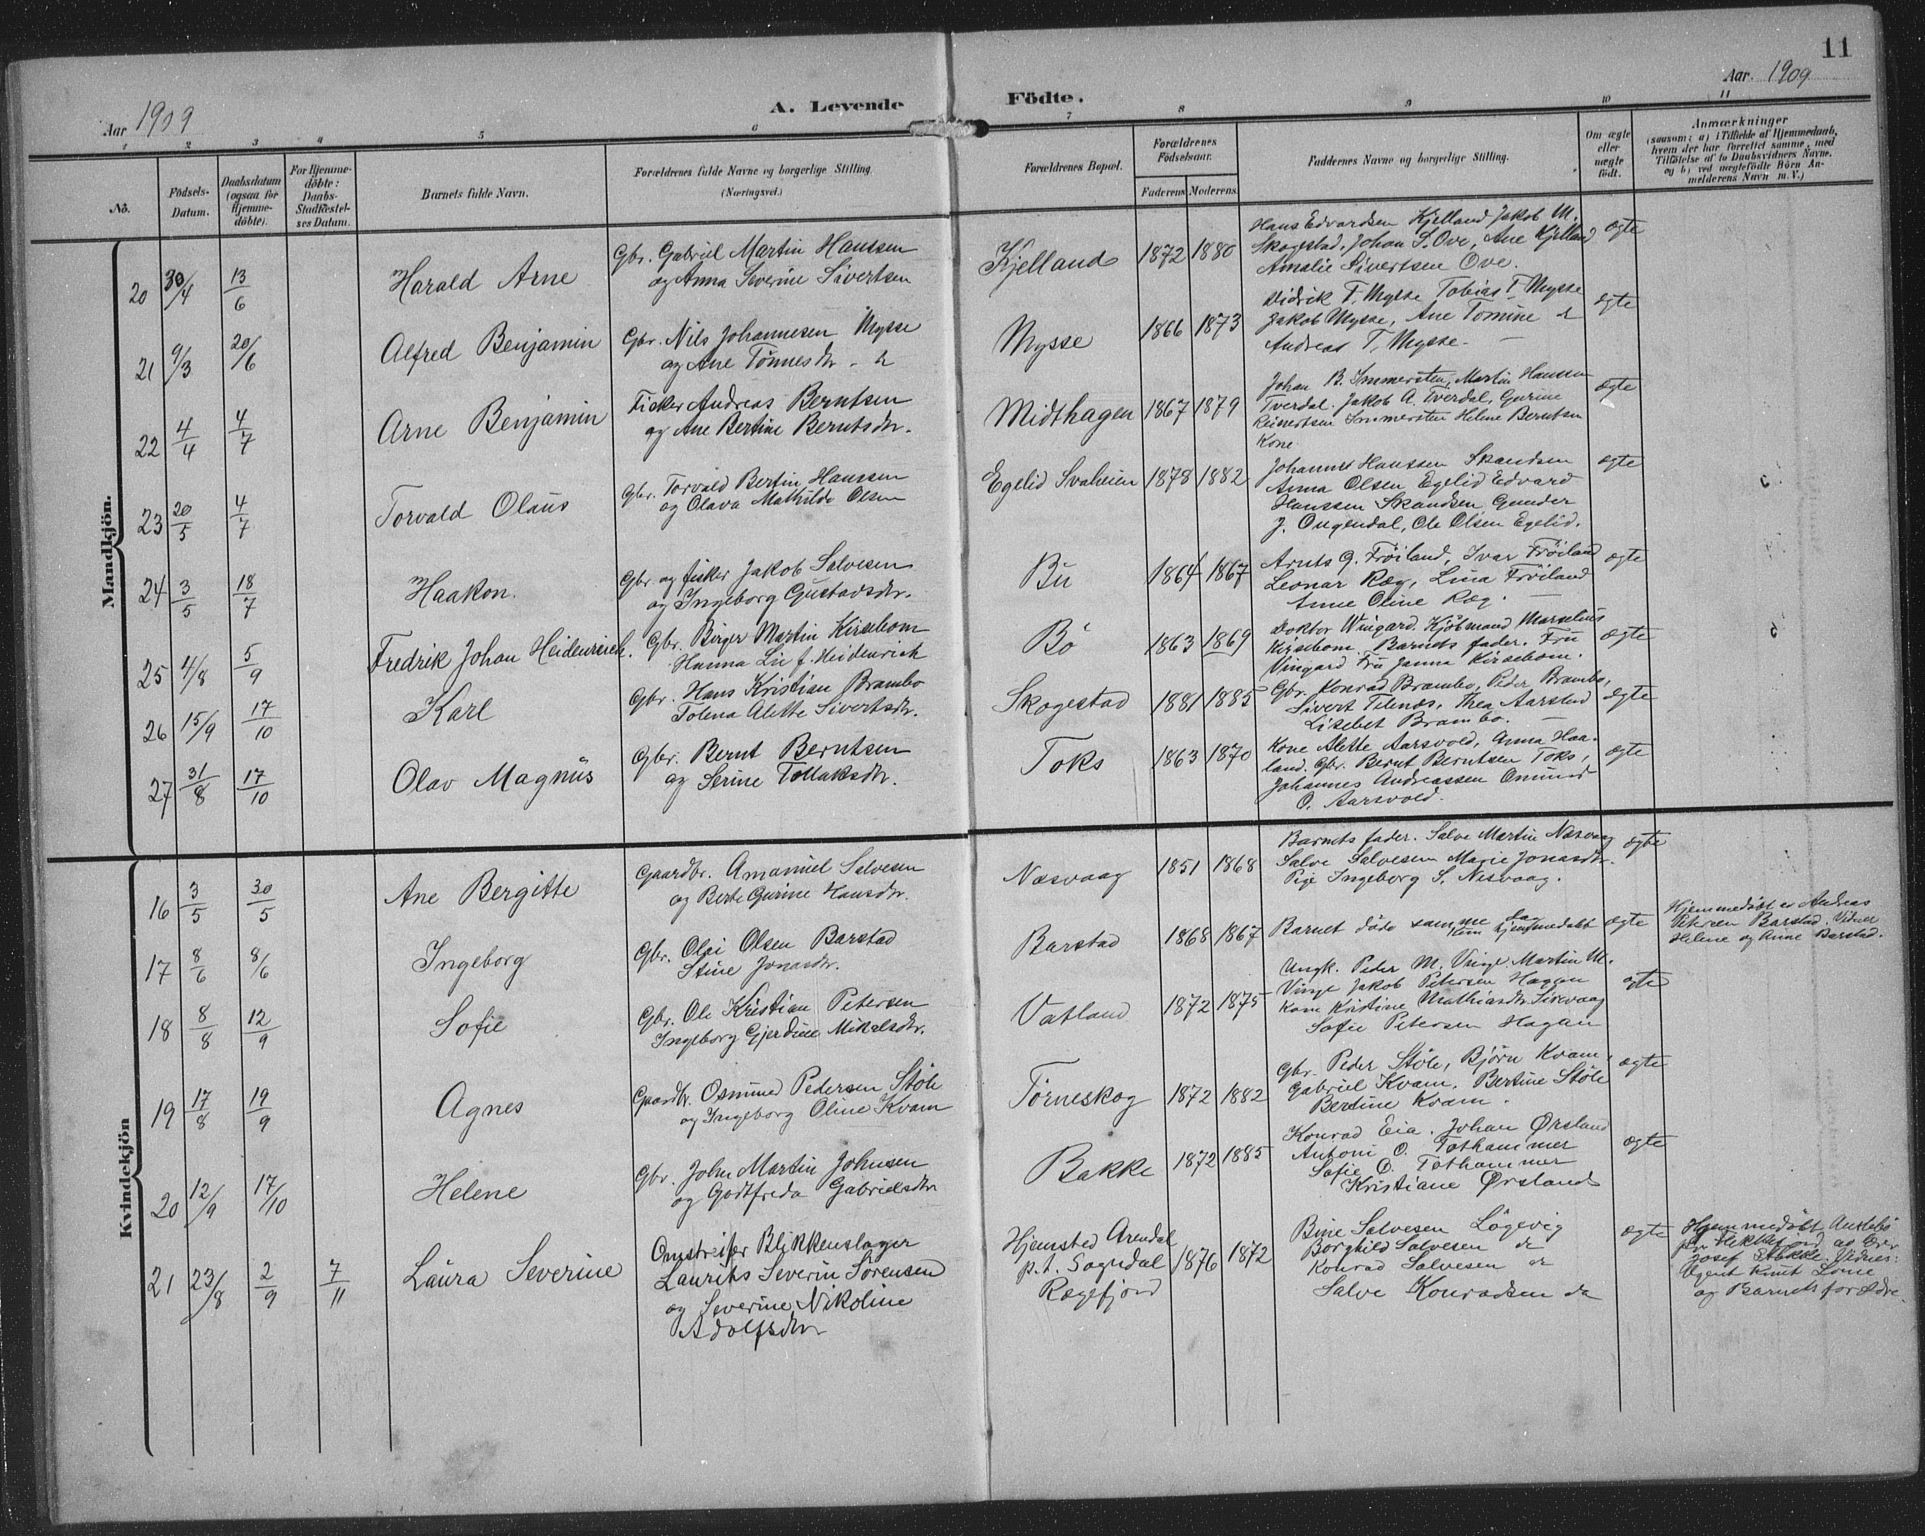 11
Aar 1909
A. Levende Födte.
Aar. 1909
1 2 3 4 5 6 7 8 9 10 11
No.
Födsels-
Datum.
Daabsdatum
(ogsaa for
Hjemme-
döbte).
For Hjemme-
döbte:
Daabs-
Stadfæstel-
ses Datum.
Barnets fulde Navn.
Forældrenes fulde Navne og borgerlige Stilling
(Næringsvei.)
Forældrenes Bopæl.
Forældrenes
Födselsaar.
Faderens. Moderens.
Faddernes Navne og borgerlige Stilling.
Om ægte
eller
uægte
födt.
Anmærkninger
(saasom: a) i Tilfælde af Hjemmedaab,
hvem der har forrettet samme, med
Tilføielse af to Daabsvidners Navne,
og b) ved uægtefödte Börn An-
melderens Navn m. V.)
Mandkjön.
20 30/4 13/6 Harald Arne
Gbr. Gabriel Martin Hanssen
og Anna Severine Sivertsen
Kjelland 1872 1880
Hans Edvardsen Kjelland, Jakob M.
Skogestad, Johan S. Ove, Ane Kjelland
Amalie Sivertsen Ove.
ægte
21 9/3 20/6 Alfred Benjamin
Gbr. Nils Johannesen Mysse
og Ane Tönnesdr.
Mysse 1866 1873
Didrik T. Mysse Tobias T. Mysse
Jakob Mysse, Ane Tomine
Andreas T. Mysse.
ægte
22 4/4 4/7 Arne Benjamin
Fisker Andreas Berntsen
og Ane Bertine Berntsdr.
Midthagen 1867 1879
Johan B. Immersten, Martin Hanssen
Tverdal. Jakob A. Tverdal, Gurine
Reinertsen Immersten Helene Berntsen
Kone
ægte
23 20/5 4/7 Torvald Olaus
Gbr. Torvald Bertin Hanssen
og Olava Mathilde Olsen
Egelid Svaheien 1878 1882
Johannes Hanssen Skandsen
Anna Olsen Egelid Edvard
Hanssen Skandsen Gunder
J. Ougendal, Ole Olsen Egelid.
ægte
24 3/5 18/7 Haakon.
Gbr. og fisker Jakob Salvesen
og Ingeborg Gustadsdr.
Bü 1864 1867
Arnts G. Fröiland, Ivar Fröiland
Leonar Ræg, Lina Fröiland
Anne Oline Ræg.
ægte
25 4/8 5/9 Fredrik Johan Heidenreich.
Gbr. Birger Martin Kirsebom
Hanna Lie f. Heidenrich
Bö 1863 1869
Doktor Wingard. Kjöbmand Marselius
Kirsebom. Barnets fader. Fru
Vingard Fru Janna Kirsebom.
ægte
26 15/9 17/10 Karl
Gbr. Hans Kristian Brambo
Tolena Alette Sivertsdr.
Skogestad 1881 1885
Gbr. Konrad Brambo, Peder Brambo,
Sivert Tilnæs, Thea Aarstad
Lisebet Brambo.
ægte
27 31/8 17/10 Olav Magnüs
Gbr. Bernt Berntsen
og Serine Tollaksdr.
Toks 1863 1870
Kone Alette Aarsvold, Anna Haa-
land. Gbr. Bernt Berntsen Toks,
Johannes Andreassen Omund
O. Aarsvold.
ægte
Kvindekjön
16 3/5 30/5 Ane Bergitte
Gaardbr. Amanuel Salvesen
og Berte Gurine Hansdr.
Nesvaag 1851 1868
Barnets fader. Salve Martin Nesvaag
Salve Salvesen Marie Jonasdr.
Pige Ingeborg S. Nesvaag.
ægte
17 8/6 8/6 Ingeborg
Gbr. Olai Olsen Barstad
Stine Jonasdr.
Barstad 1868 1867
Barnet döde samme dag
hjemmedøbt
ægte
Hjemmedöbt av Andreas
Petersen Barstad. Vidner
Helene og Anne Barstad.
18 8/8 12/9 Sofie
Gbr. Ole Kristian Petersen
Ingeborg Gjerdine Mikalsdr.
Vatland 1872 1875
Ungk. Peder M. Vinge. Martin M.
Vinge Jakob Petersen Hagan
Kone Kristine Mathiasdr. Sirevaag
Sofie Petersen Hagan
ægte
19 17/8 19/9 Agnes
Gaardbr. Osmund Pedersen Stöle
og Ingeborg Oline Kvam
Törneskog 1872 1882
Gbr. Peder Stöle, Björn Kvam,
Gabriel Kvam, Bertine Stöle
Bertine Kvam.
ægte
20 12/9 17/10 Helene
Gbr. John Martin Johnsen
og Godtfreda Gabrielsdr
Bakke 1872 1885
Konrad Eia. Johan Ørsland
Antoni O. Tothammer
Sofie O. Tothammer
Kristiane Ørsland
ægte
21 23/8 2/9 7/11 Laura Severine
Omstreifer Blikkenslager
Laurits Severin Sörensen
og Severine Nikoline
Adolfsdr
Hjemsted Arendal
p.t. Sogndal
Rægefjord
1876 1872
Bine Salvesen Lögevig
Borghild Salvesen do
Konrad Salvesen do
Salve Konradsen do
ægte
Hjemmedöbt
Hekkefjord av
Josef Vidnes:
Agent Knut
og Barnets forældre.